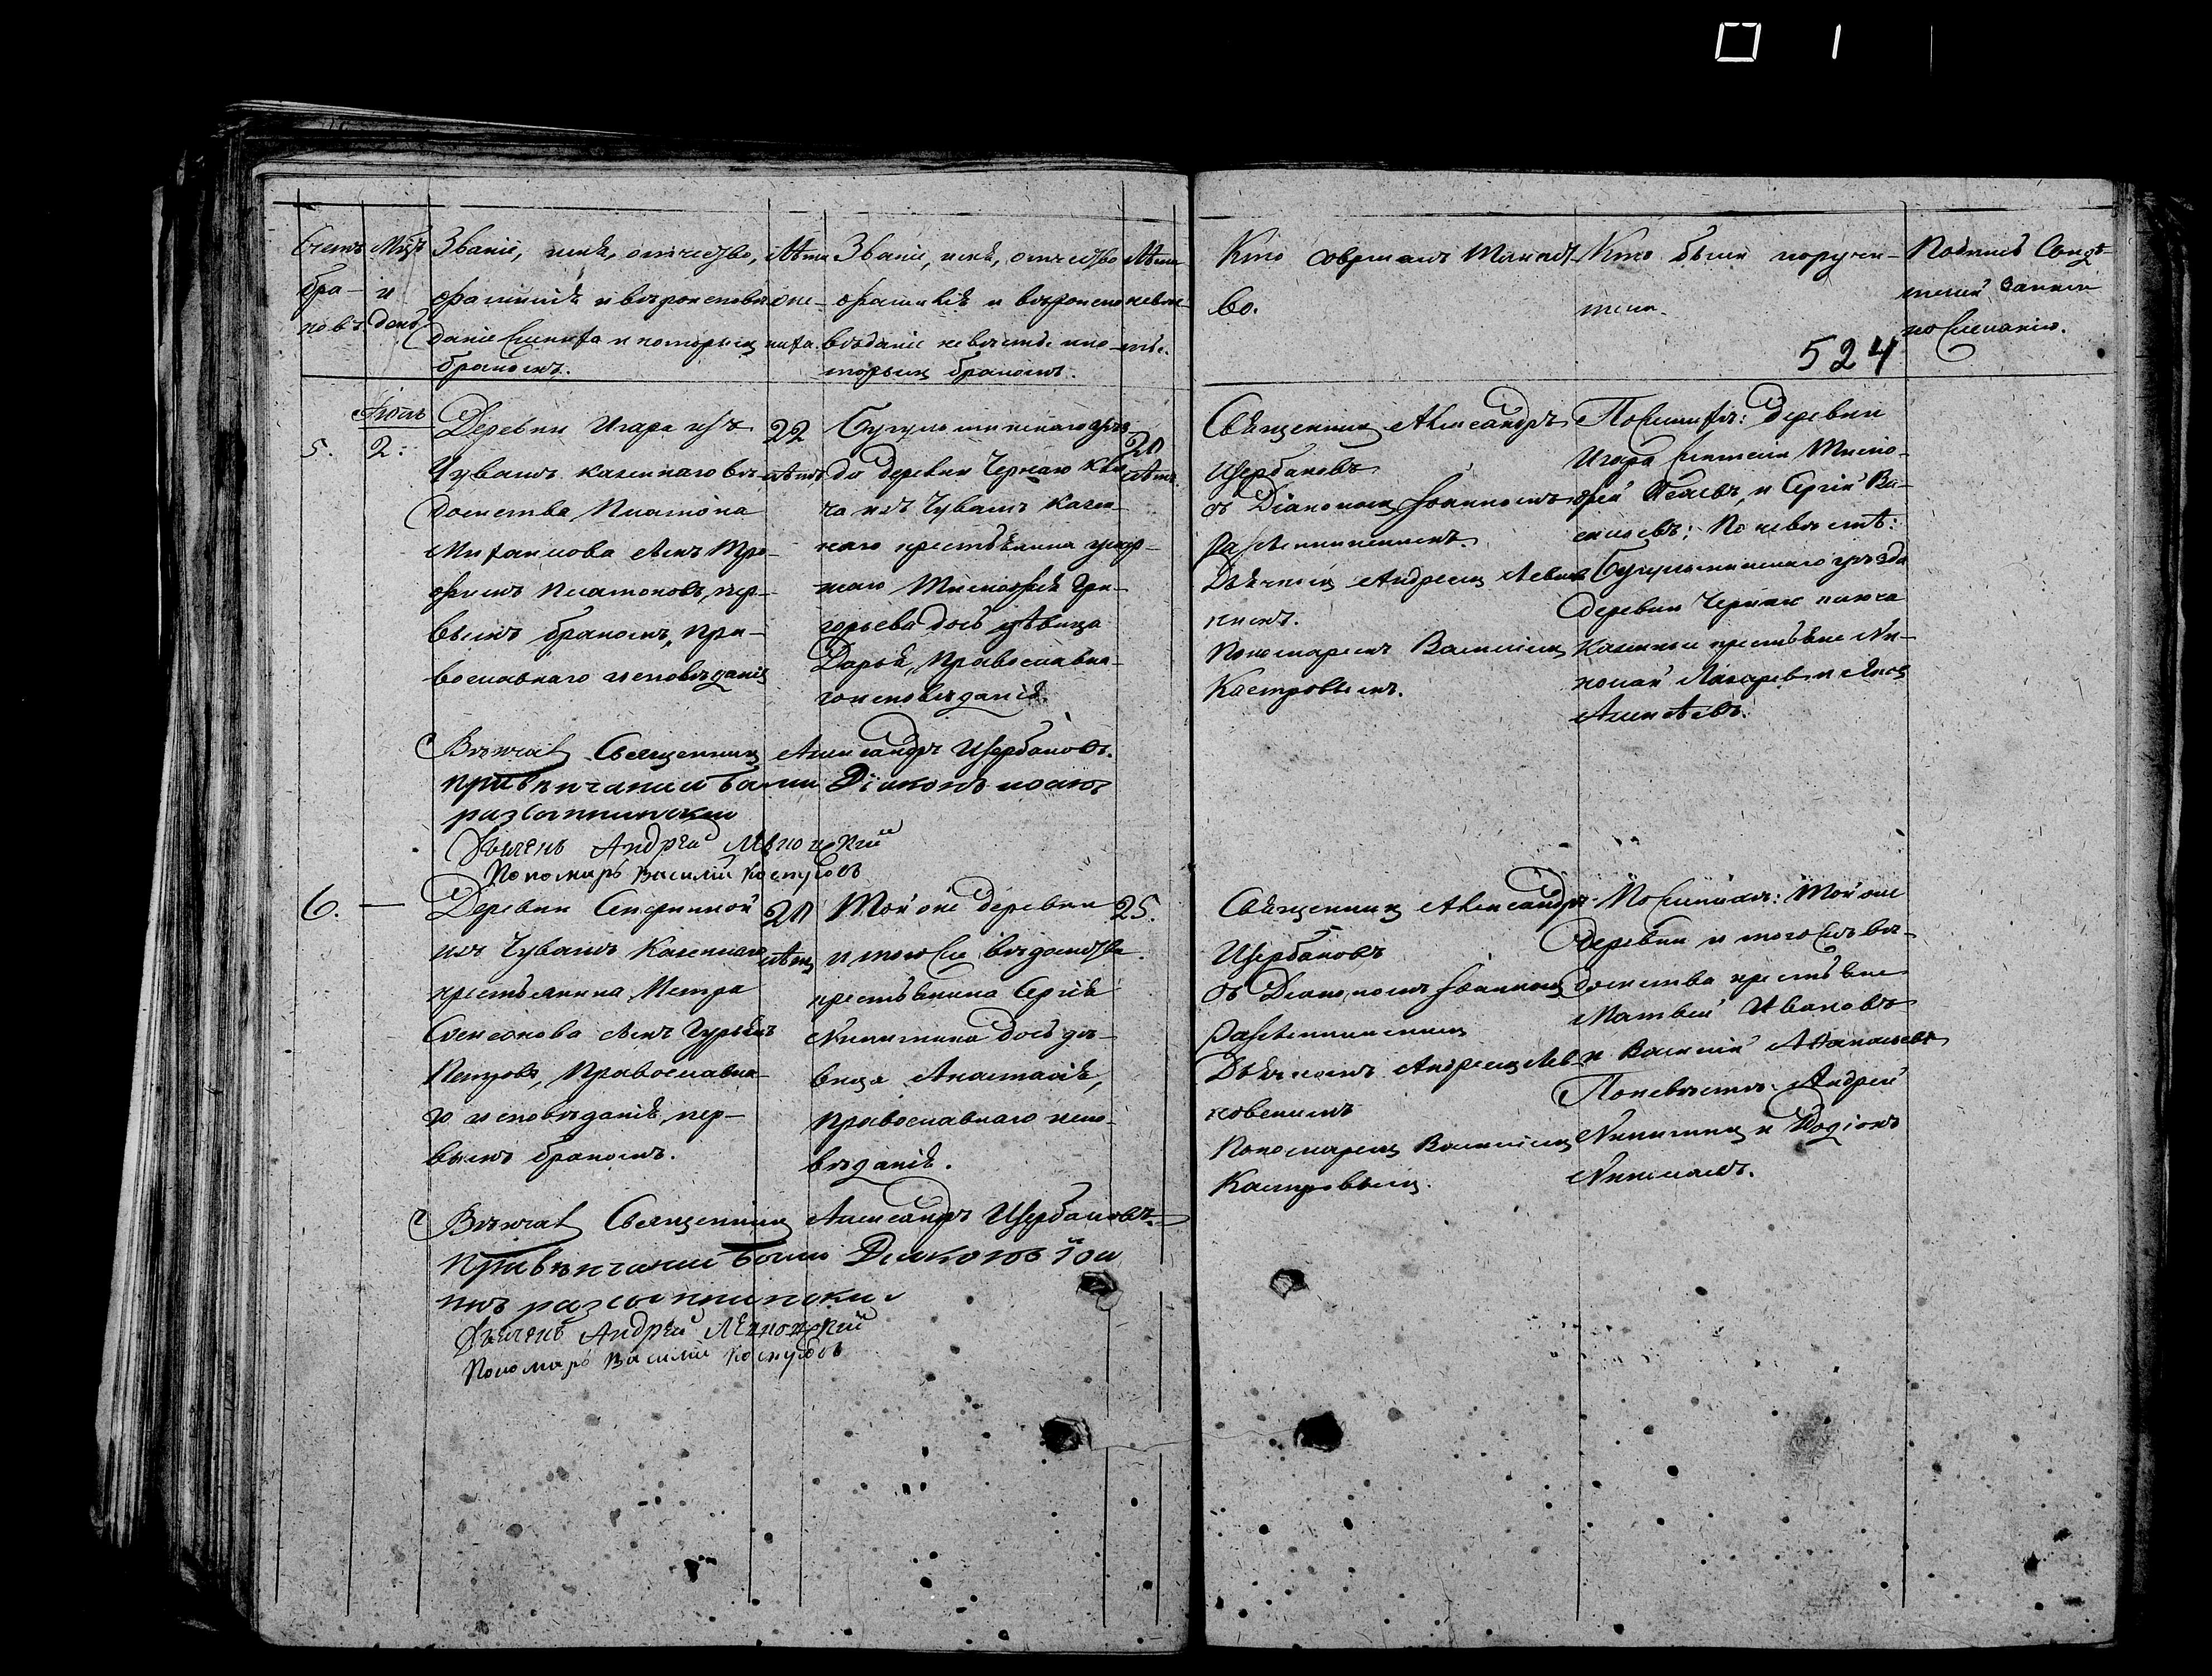 Счетъ браковъ.
Мѣсяцъ и день
Званіе, имя, отчество,
фамилія и вѣроисповѣ-
даніе жениха и которымъ
бракомъ.
Лѣта
же-
ниха.
Званіе, имя, отчество
фамилія и вѣроиспо-
вѣданіе невѣсты и ко-
торымъ бракомъ.
Лѣта
невѣс-
ты.
Кто совершалъ Таинст-
во.
Кто были поручи-
тели.
Подпись Свидѣ-
телей записи
по желанію.
524
5.
Іюля
2:
Деревни Игара изъ
Чувашъ казеннаго вѣ-
домства Платона
Михайлова сынъ Тро-
фимъ Платоновъ, пер-
вымъ бракомъ, пра-
вославнаго исповѣданія
22
лѣтъ
Бугульминскаго уѣз
да деревни Чернаго Клю
ча изъ Чувашъ казен-
наго крестьянина умер-
шаго Тимофея Гри-
горьева дочь дѣвица
Дарья, Православна-
го исповѣданія.
20
лѣтъ.
Священникъ Александръ
Щербаковъ
съ Діакономъ Іоанномъ
Разсыпинскимъ.
Дьячкомъ Андреемъ Левко
кимъ.
Пономаремъ Василіемъ
Костровымъ.
По женихѣ: деревни
Игара жители Тимо-
фей и Сергій Ва-
сильевъ: По невѣстѣ:
Бугульминскаго уѣзда
деревни Чернаго ключа
Казенные крестьяне Ни-
колай Лазарев и Яков
Алексѣевъ.
Вѣнчалъ Священникъ Александръ Щербаковъ.
При вѣнчаніи были Діаконъ иоанъ
разсыпинскій
Дьячекъ Андрей
Пономарь Василій Костровъ
6. —
Деревни
изъ Чувашъ Казеннаго
крестьянина Петра
Семенова сынъ Гурьянъ
Петровъ, Православна-
го исповѣданія, пер-
вымъ бракомъ.
20
лѣтъ
Той же деревни
и того же вѣдомства
крестьянина Сергія
Никитина дочь дѣ-
вица Анастасія,
православнаго испо-
вѣданія.
25.
Священникъ Александръ
Щербаковъ
съ Діакономъ Іоанномъ
Разсыпинскимъ
Дьячкомъ Андреемъ
Пономаремъ Василіемъ
Костровымъ.
По женихѣ: Той же
деревни и того жъ вѣ-
домства крестьяне
Матвей Ивановъ
и Василій Афанасьевъ
По невѣстѣ: Андрей
Никитинъ и Родіонъ
Вѣнчалъ Священникъ Александръ Щербаковъ.
При вѣнчаніи были Діаконъ іоа
нъ разсыпинскій
Дьячекъ Андрей
Пономарь Василій Костровъ